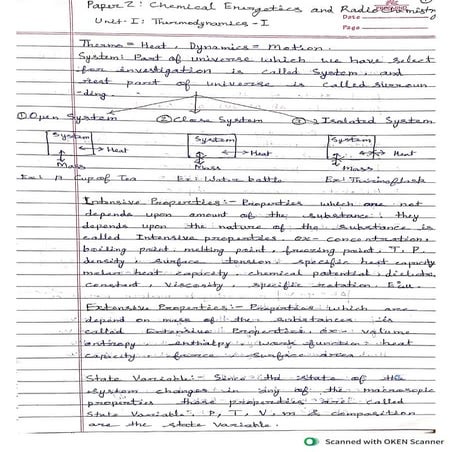 Paper 2: Chemical Energetics and Radio Chemistry
Unit-I: Thermodynamics-I
Date
Page
Thermo = Heat, Dynamics = Motion.
System: Part of universe which we have select
for investigation is called System, and
rest part of universe is called surroun
-ding.
① Open System ② Close System ③ Isolated System
System System System
Heat Heat Heat
Mass Mass Mass
Ex: Cup of Tea Ex: Water bottle Ex: Thermoflask
Intensive Properties:- Properties which are not
depends upon amount of the substance, they
depends upon the nature of the substance is
called Intensive properties, ex- concentration,
boiling point, melting point, freezing point, T, P
density, surface tension, specific heat capacity
molar heat capacity, chemical potential, dielectric
constant, Viscosity, specific rotation,
Extensive Properties:- Properties which are
depend on mass of the substances is
called Extensive Properties, ex- volume
entropy, enthalpy, work function, heat
capacity, force, surface area
State Variable:- Since the state of the
system changes in any of the macroscopic
properties those properties are called
State Variable. P, T, V, m & composition
are the state variable.
Scanned with OKEN Scanner